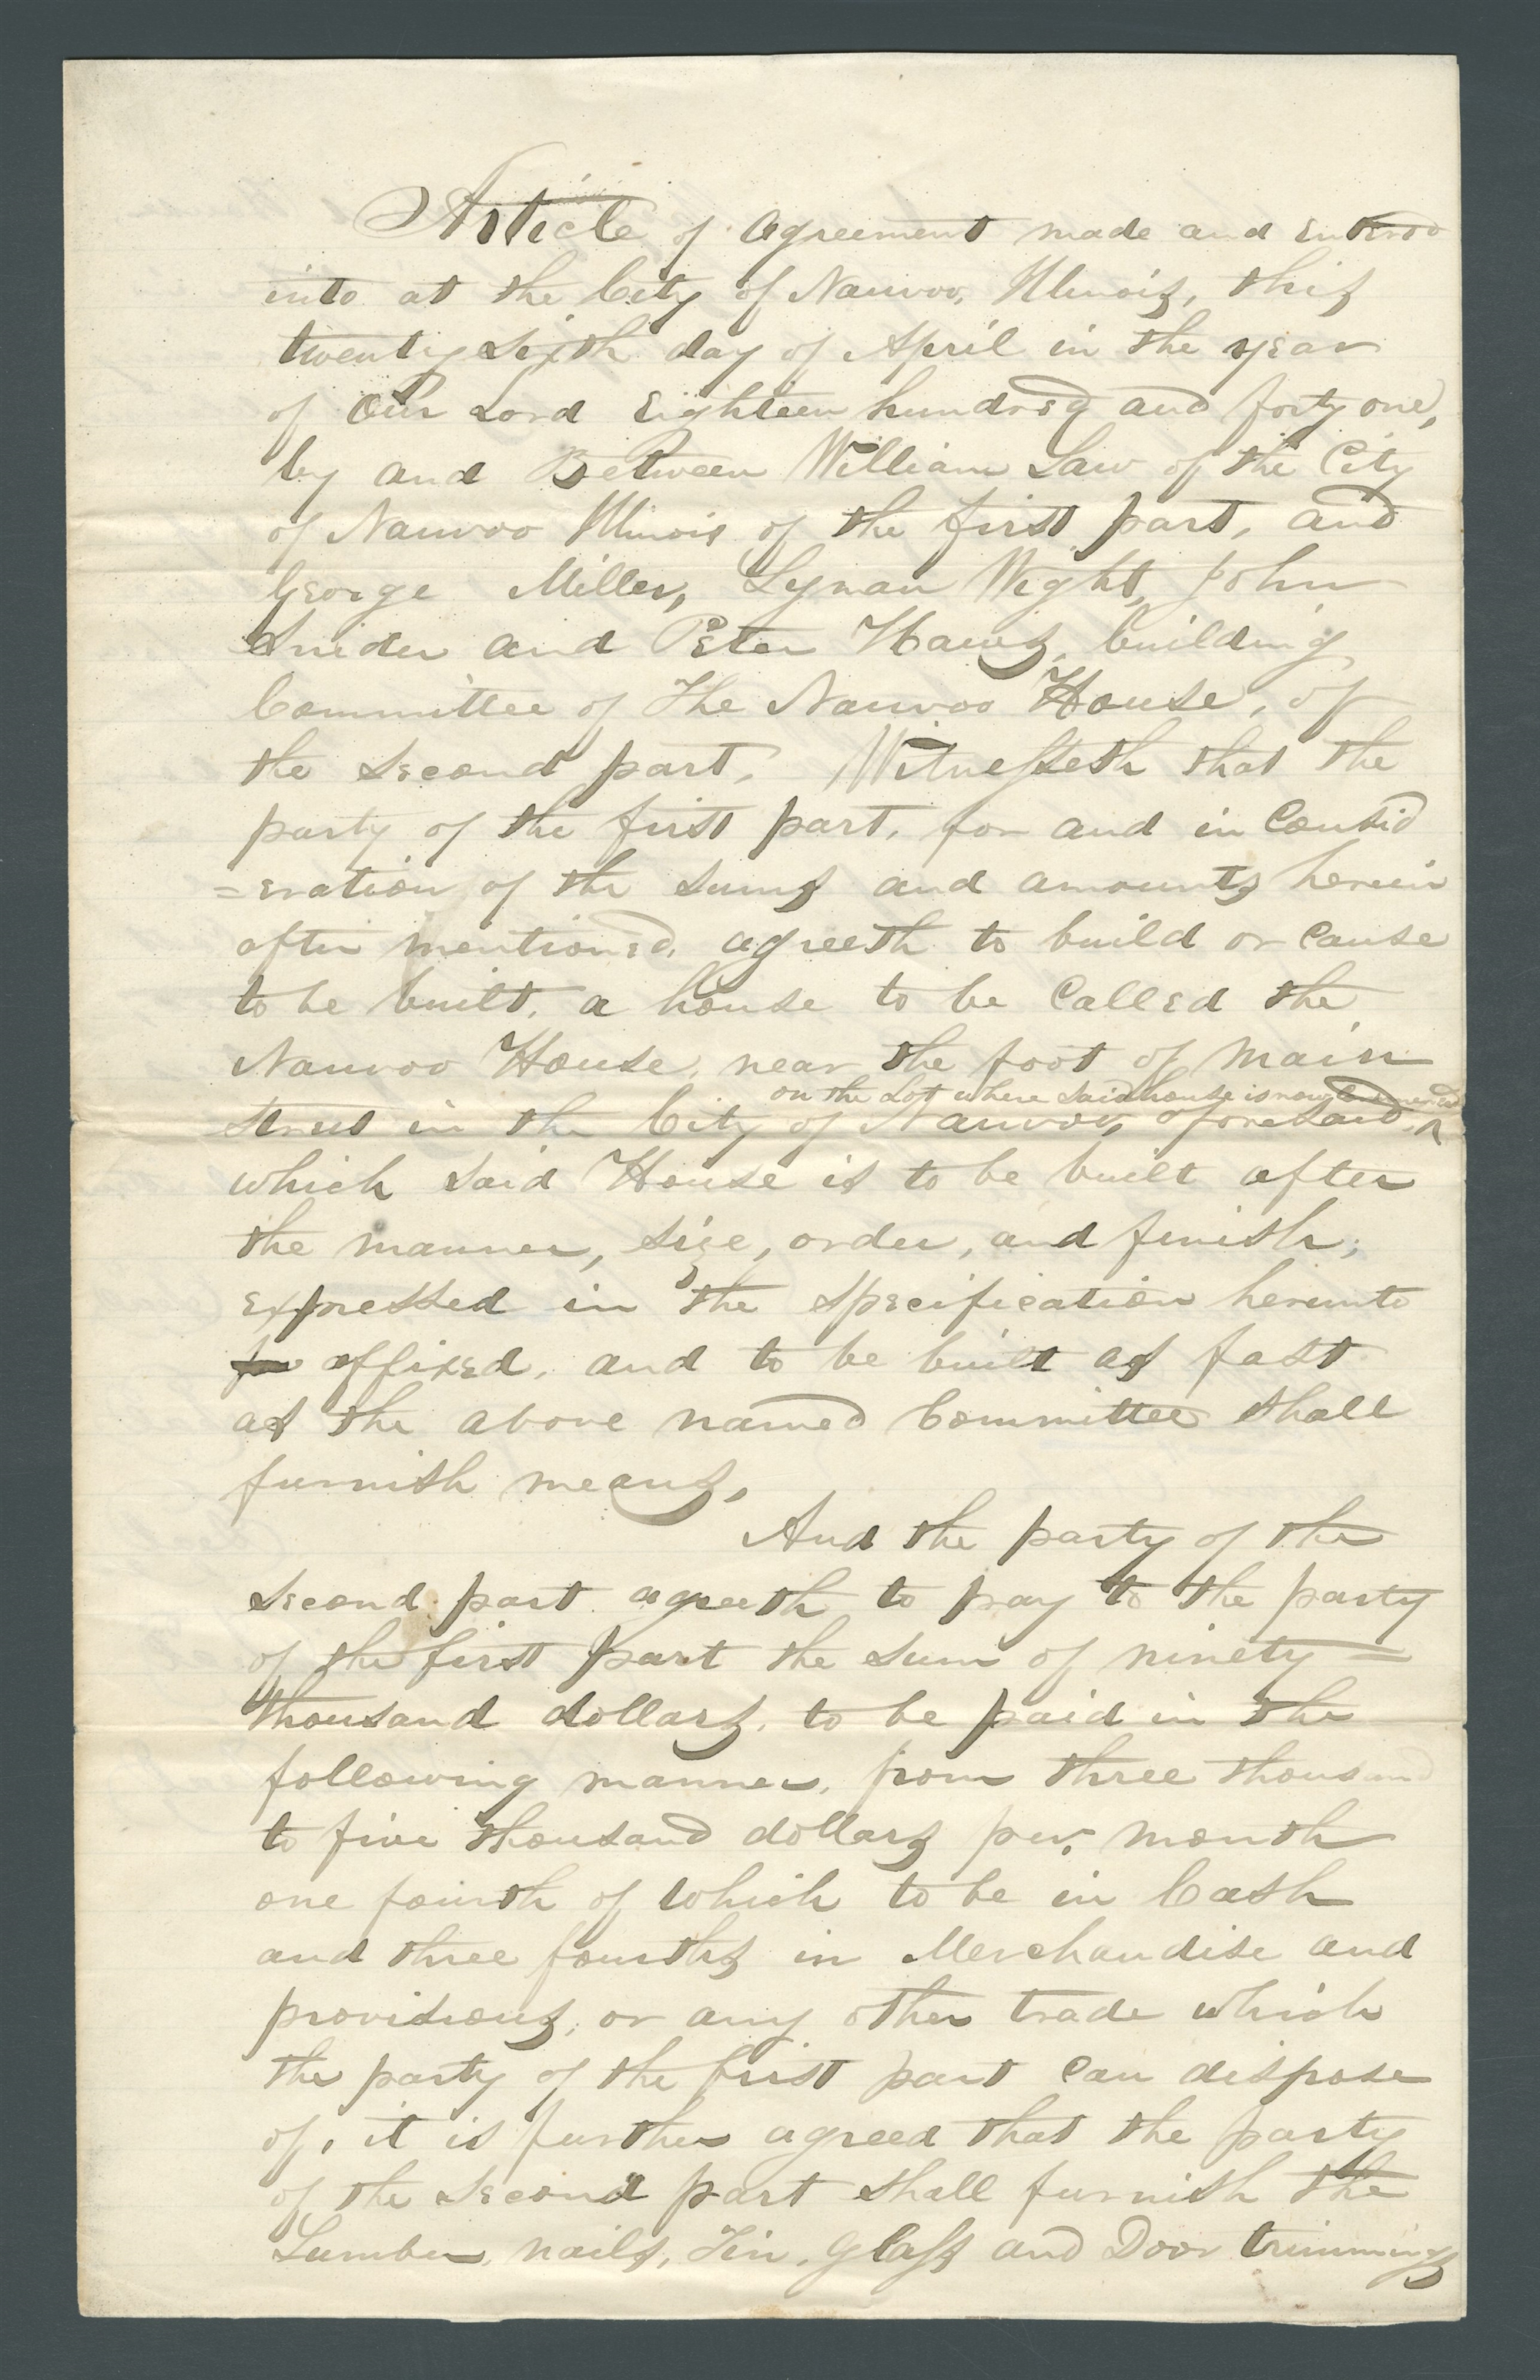 Article of agreement made and entered
into at the City of Nauvoo, Illinois, this
twenty sixth day of April in the year
of our Lord Eighteen hundred and forty one,
by and Between William Law of the City
of Nauvoo Illinois of the first part, and
George Miller, Lyman Wight, John
Snider and Peter Haws, building
Committee of The Nauvoo House, of
the second part, Witnesseth that the
party of the first part, for and in Consid
=eration of the sums and amounts herein
after mentioned, agreeth to build or cause
to be built, a house to be Called the
Nauvoo House, near the foot of main
on the Lot where said house is now
street in the City of Nauvoo, aforesaid, ^
which said House is to be built after
the manner, size, order, and finish,
expressed in the specification hereunto
affixed, and to be built as fast
as the above named Committee shall
furnish means,
And the party of the
second part agreeth to pay to the party
of the first part the sum of ninety =
thousand dollars, to be paid in the
following manner, from three thousand
to five thousand dollars per, month
one fourth of which to be in Cash
and three fourths in Merchandise and
provisions, or any other trade which
the party of the first part can dispose
of, it is further agreed that the party
of the second part shall furnish the
Lumber, nails, Tin, glass and Door trimmings